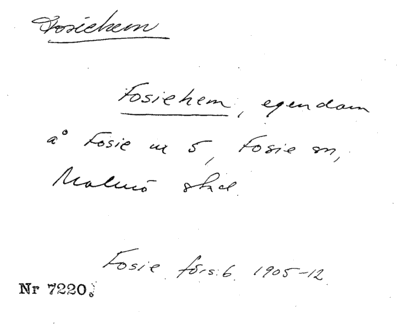 Fosiehem
Fosiehem, egendom
å Fosie nr 5, Fosie sn,
Malmö stad.
Fosie förs.b. 1905-12
Nr 7220.